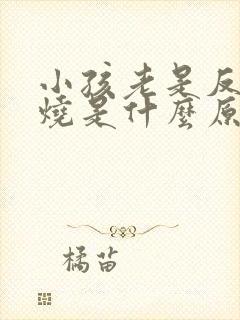 小孩老是反
燒是什麼原
橘苗